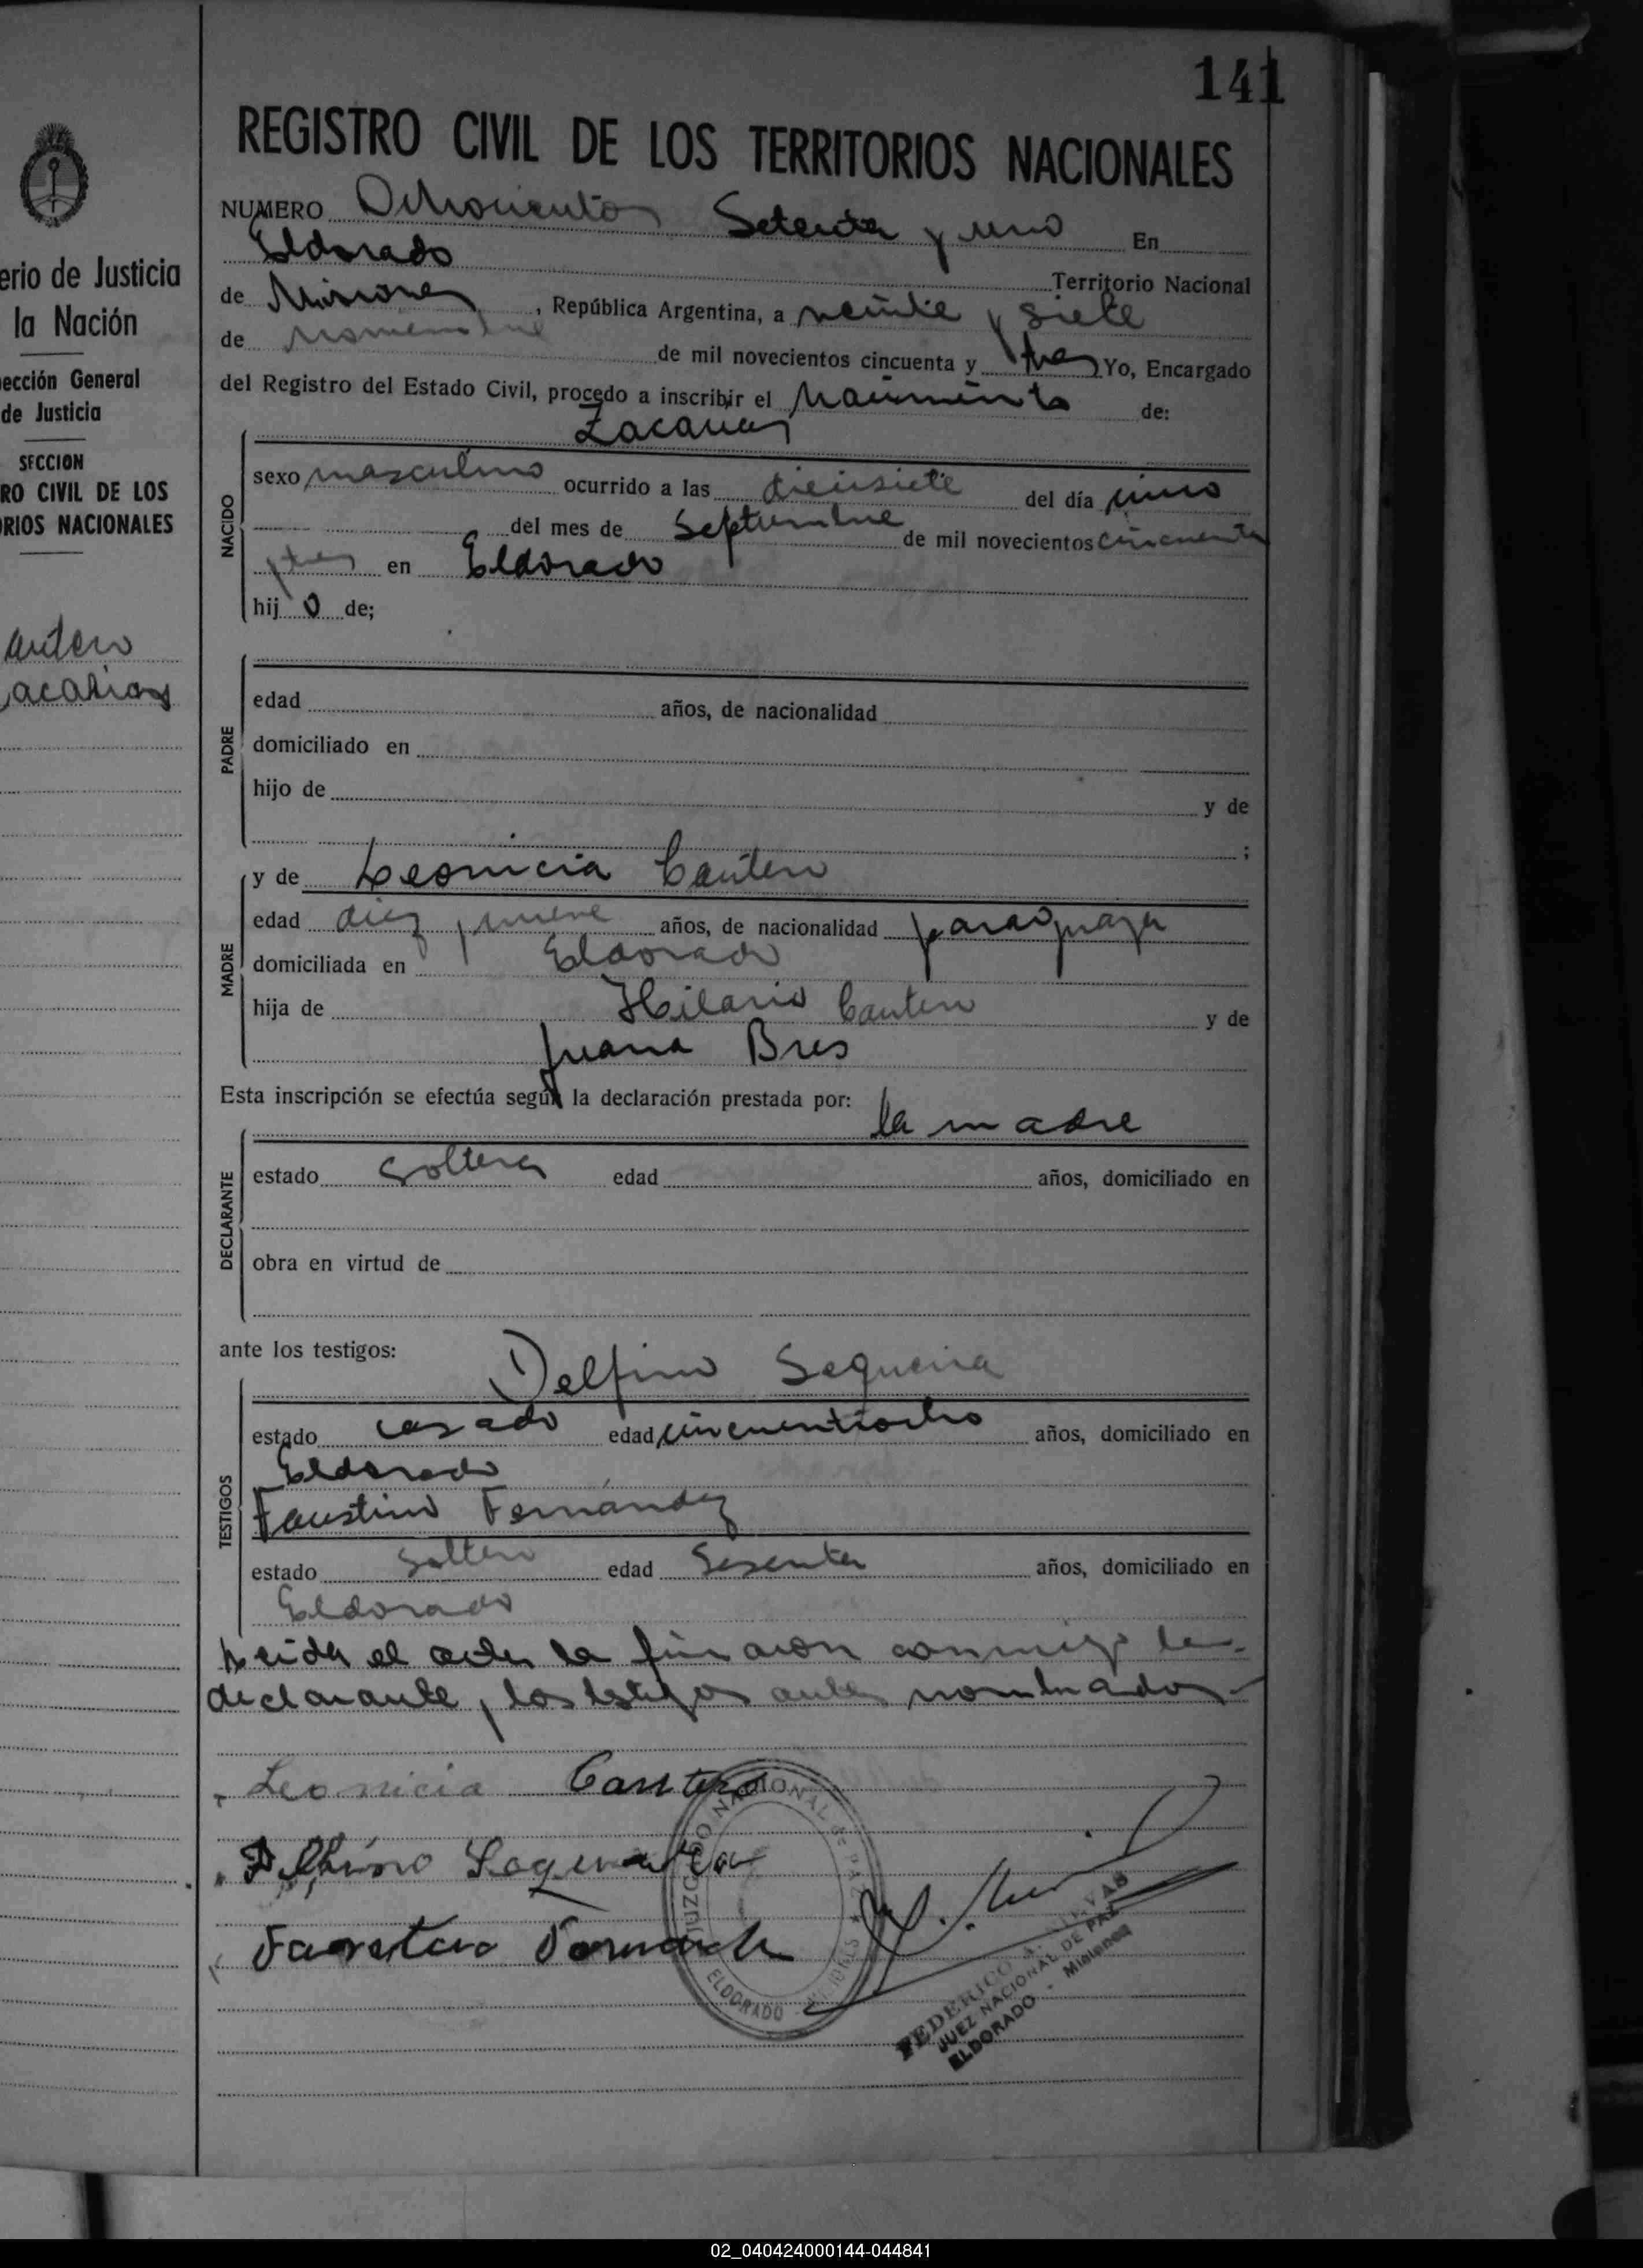 141
REGISTRO CIVIL DE LOS TERRITORIOS NACIONALES
NUMERO Ochocientos Setenta y uno En
Eldorado Territorio Nacional
de Misiones, República Argentina, a veinte y siete
de noviembre de mil novecientos cincuenta y tres Yo, Encargado
del Registro del Estado Civil, procedo a inscribir el nacimiento de:
Zacarias
NACIDO
sexo masculino ocurrido a las diecisiete del día cinco
del mes de Septiembre de mil novecientos cincuenta
y tres en Eldorado
hij o de;
PADRE
edad años, de nacionalidad
domiciliado en
hijo de y de
;
MADRE
y de Leonicia Cantero
edad diez y nueve años, de nacionalidad paraguaya
domiciliada en Eldorado
hija de Hilario Cantero y de
Juana Bres
Esta inscripción se efectúa según la declaración prestada por:
la madre
DECLARANTE
estado soltera edad años, domiciliado en
obra en virtud de
ante los testigos:
Delfino Sequeira
TESTIGOS
estado casado edad cincuentiocho años, domiciliado en
Eldorado
Faustino Fernández
estado soltero edad Sesenta años, domiciliado en
Eldorado
Leida el acta la firmaron conmigo la
declarante y los testigos antes nombrados
Leonicia Cantero
JUZGADO NACIONAL DE PAZ
ELDORADO
FEDERICO A.
JUEZ NACIONAL DE PAZ
ELDORADO - Misiones
erio de Justicia
la Nación
ección General
de Justicia
SECCION
RO CIVIL DE LOS
RIOS NACIONALES
antero
acarias
02_040424000144-044841